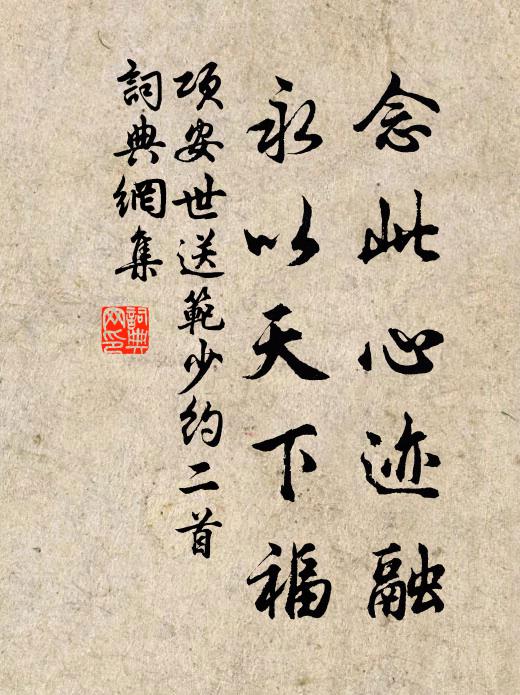 念此心迹融
永以天下福
项安世送範少约二首
詞典網集
詞典网印